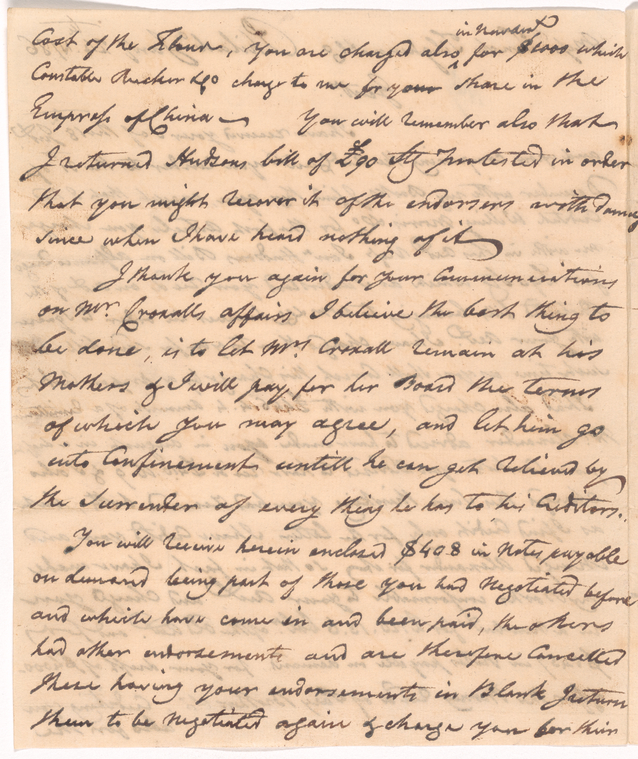 in Novemr
Cost of the Flour, You are charged also for $1000 which
Constable Rucker & Co charge to me for your share in the
Empress of China You will remember also that
I returned Hudsons bill of £90 Stg Protested in order
that you might recover it of the endorsers with damag
since when I have heard nothing of it
I thank you again for your Communications
on Mr Croxalls affairs I believe the best thing to
be done, is to let Mrs Croxall remain at his
Mothers & I will pay for her Board the terms
of which You may agree, and let him go
into Confinement untill he can get relieved by
the Surrender of every thing he has to his Creditors.
You will receive herein enclosed $408 in Notes payable
on demand being part of those you had Negotiated before
and which have come in and been paid, the others
had other endorsements and are therefore Cancelled
these having your endorsements in Blank I return
them to be Negotiated again & charge you for them